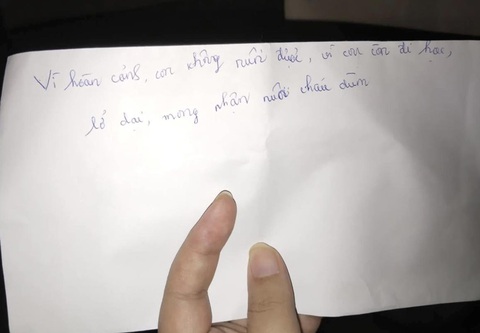 Vì hoàn cảnh, con không nuôi được, vì con còn đi học,
lỡ dại, mong nhận nuôi cháu dùm